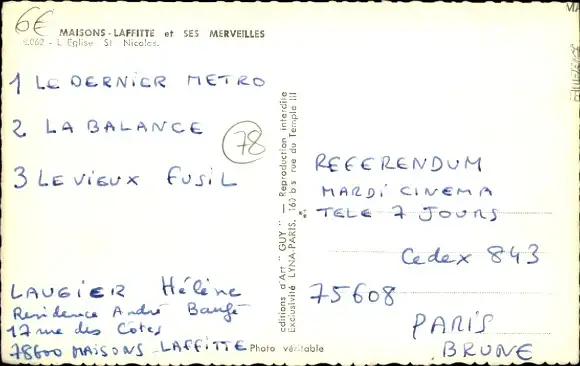 6€
MAISONS-LAFFITTE et SES MERVEILLES
L'Eglise St Nicolas.
1 LE DERNIER METRO
2 LA BALANCE
78
3 LE VIEUX FUSIL
LAUGIER Hélène
Residence André Baugé
17 rue des Côtes
78600 MAISONS-LAFFITTE
Photo véritable
Editions d'Art "GUY" — Reproduction interdite
Exclusivité LYNA-PARIS, 160 bis rue du Temple III
REFERENDUM
MARDI CINEMA
TELE 7 JOURS
Cedex 843
75608
PARIS
BRUNE
MA